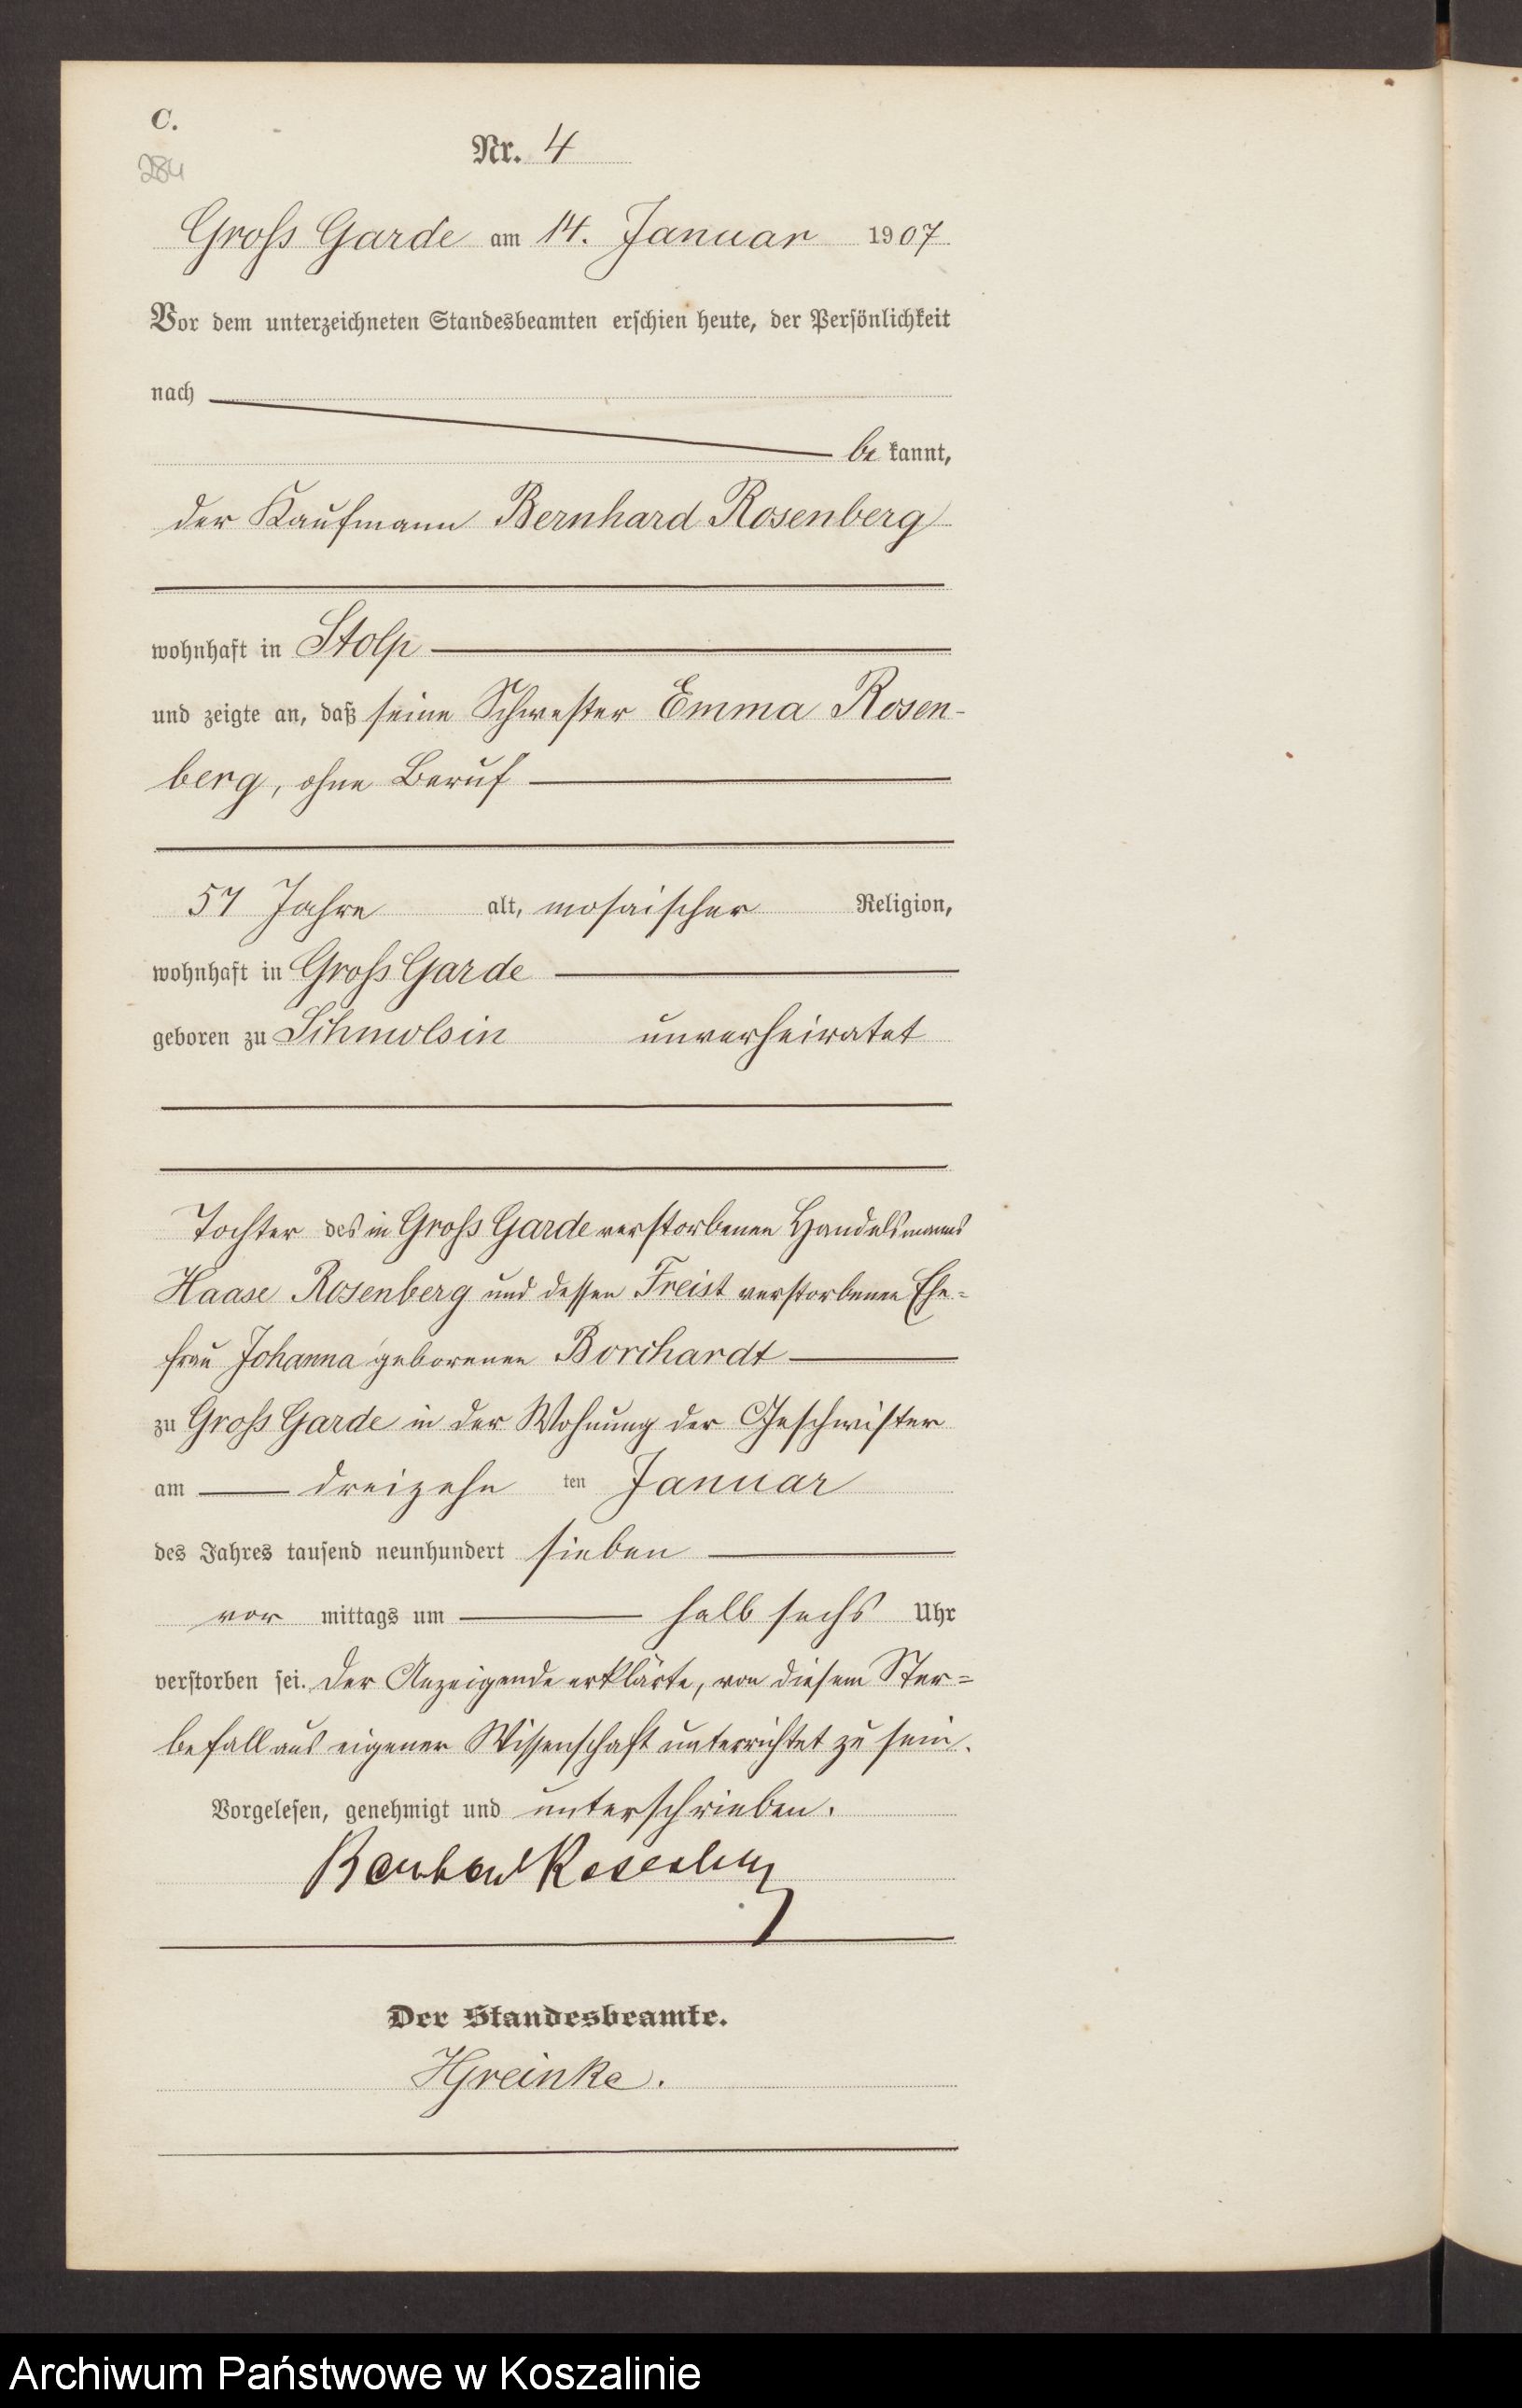 C.
284
Nr. 4
Gross Garde am 14. Januar 1907
Vor dem unterzeichneten Standesbeamten erschien heute, der Persönlichkeit
nach
be kannt,
der Kaufmann Bernhard Rosenberg
wohnhaft in Stolp
und zeigte an, daß seine Schwester Emma Rosen-
berg, ohne Beruf
57 Jahre alt, mosaischer Religion,
wohnhaft in Gross Garde
geboren zu Schmolsin unverheiratet
Tochter des in Gross Garde verstorbenen Handelsmanns
Haase Rosenberg und dessen Freist verstorbenen Ehe=
frau Johanna geborenen Borchardt
zu Gross Garde in der Wohnung der Geschwister
am dreizehn ten Januar
des Jahres tausend neunhundert sieben
vor mittags um halb sechs Uhr
verstorben sei. Der Anzeigende erklärte, von diesem Ster=
befall aus eigener Wissenschaft unterrichtet zu sein.
Vorgelesen, genehmigt und unterschrieben.
Bernhard Rosenberg
Der Standesbeamte.
Archiwum Państwowe w Koszalinie